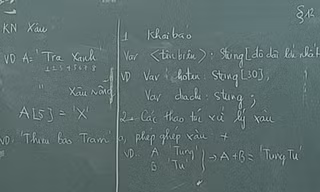 §12
KN Xâu
VD A = 'Tra Xanh'
1 2 3 4 5 6 7 8
'Xâu rỗng
A[5] = 'X'
VD: 'Thieu bao Tram'
1 Khai báo
Var <tên biến> : String [độ dài lớn nhất
VD Var hoten : String [30];
Var diachi : string ;
2 - Các thao tác xử lý xâu
a, phép ghép xâu +
VD: A 'Tung'
B 'Tu' } => A + B = 'Tung Tu'